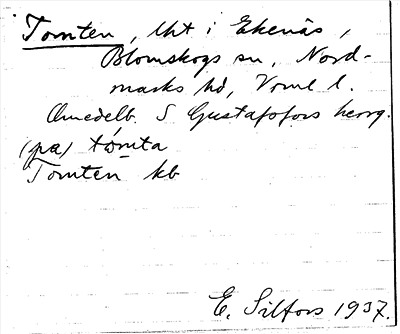 Tomten, lht i Ekenäs,
Blomskogs sn, Nord-
marks hd, Vrml l.
Omedelb. S Gustafsfors herrg.
(pa) tomta
Tomten kb
E. Silfors 1937.